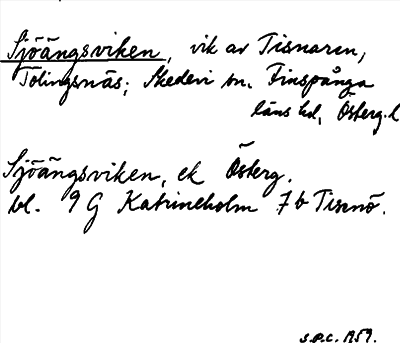 Sjöängsviken, vik av Tisnaren,
Tolingsnäs; Skedevi sn. Finspånga
läns hd, Österg.l
Sjöängsviken, ek Österg.
bl. 9 G Katrineholm 7 b Tisenö.
S.P.C. 1959.